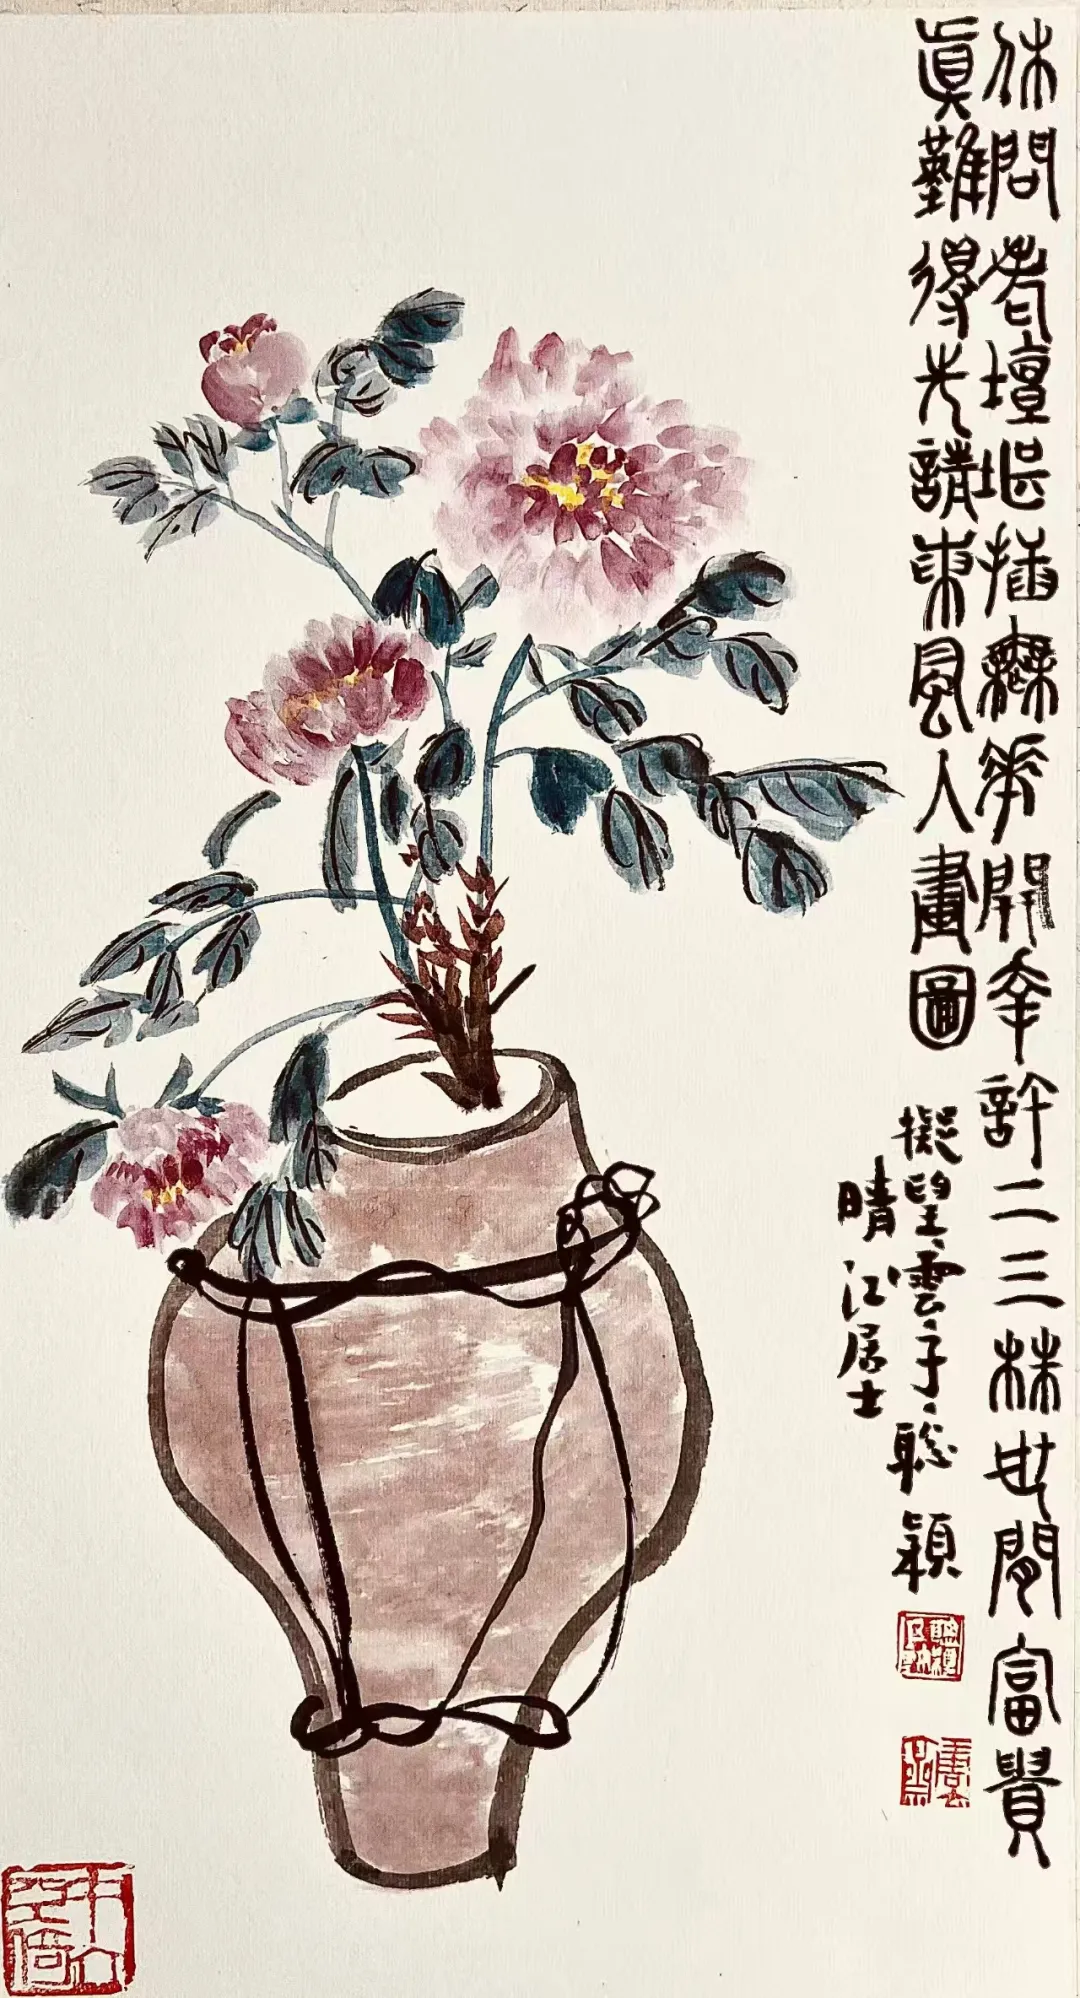 休問老壇堪插無花開幸許二三株世間富貴
真難得先請東風入畫圖
擬望雲子聰穎
晴江居士